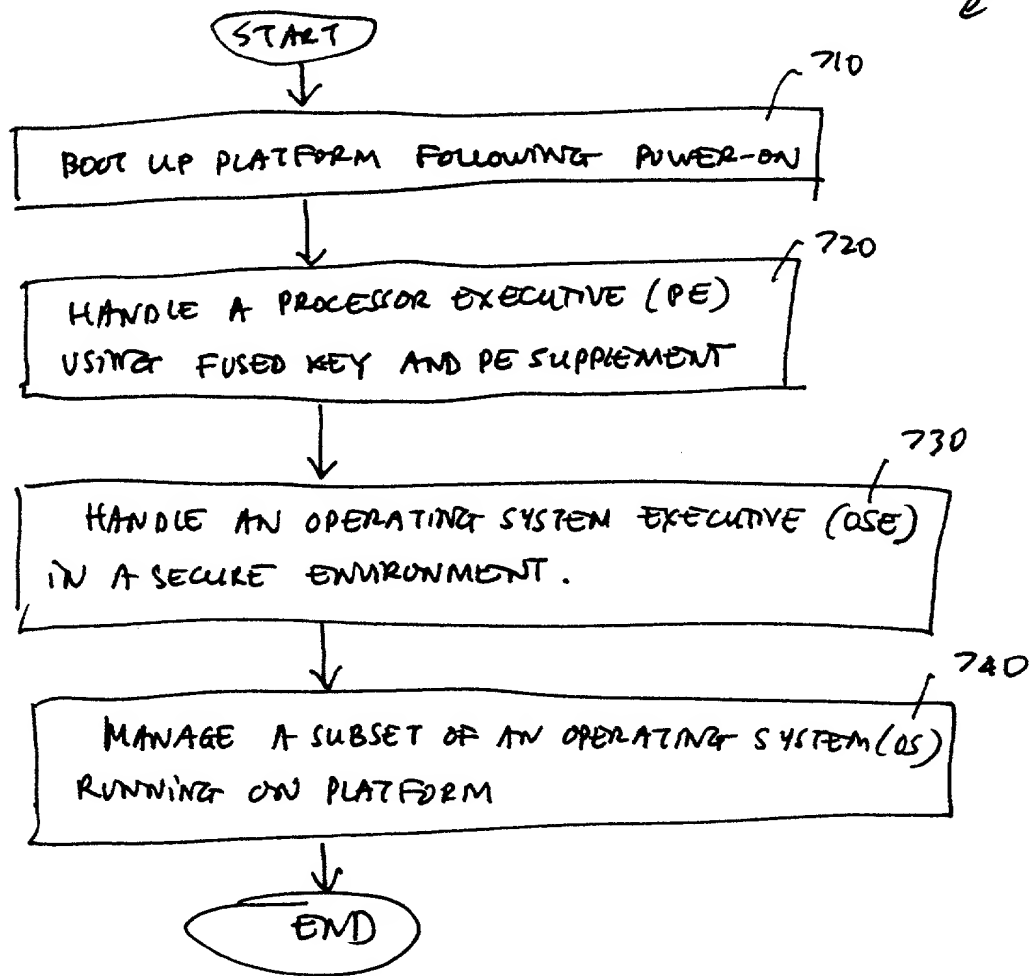 START
710
BOOT UP PLATFORM FOLLOWING POWER-ON
720
HANDLE A PROCESSOR EXECUTIVE (PE)
USING FUSED KEY AND PE SUPPLEMENT
730
HANDLE AN OPERATING SYSTEM EXECUTIVE (OSE)
IN A SECURE ENVIRONMENT.
740
MANAGE A SUBSET OF AN OPERATING SYSTEM (OS)
RUNNING ON PLATFORM
END